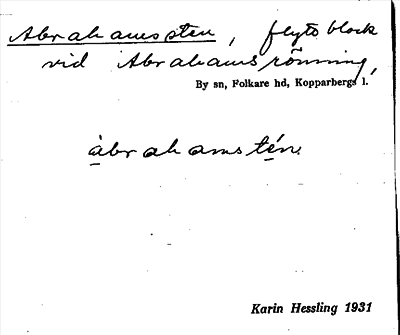 Abrahamssten, flyttblock
vid Abrahamsrönning,
By sn, Folkare hd, Kopparbergs l.
àbrahamstén.
Karin Hessling 1931